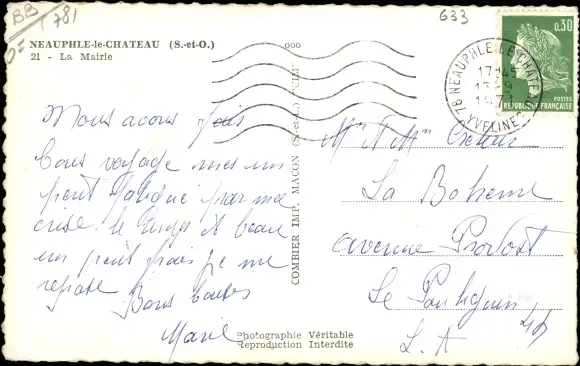 BB
781
633
NEAUPHLE-le-CHATEAU (S.-et-O.)
21 - La Mairie
000
0.30
POSTES
REPUBLIQUE FRANÇAISE
78 NEAUPHLE LE CHATEAU
17H45
13-9
YVELINES
Nous avons fais
bons voyage mes un
peut fatigué par ma
crise. le temps it beau
un peut frais je me
repose Bons baises
Marie
COMBIER IMP. MACON (S.-et-L.) "CIM"
Mr & Mme
La Boheme
avenue Provost
Le Pouliguen
44
L. A
Photographie Véritable
Reproduction Interdite